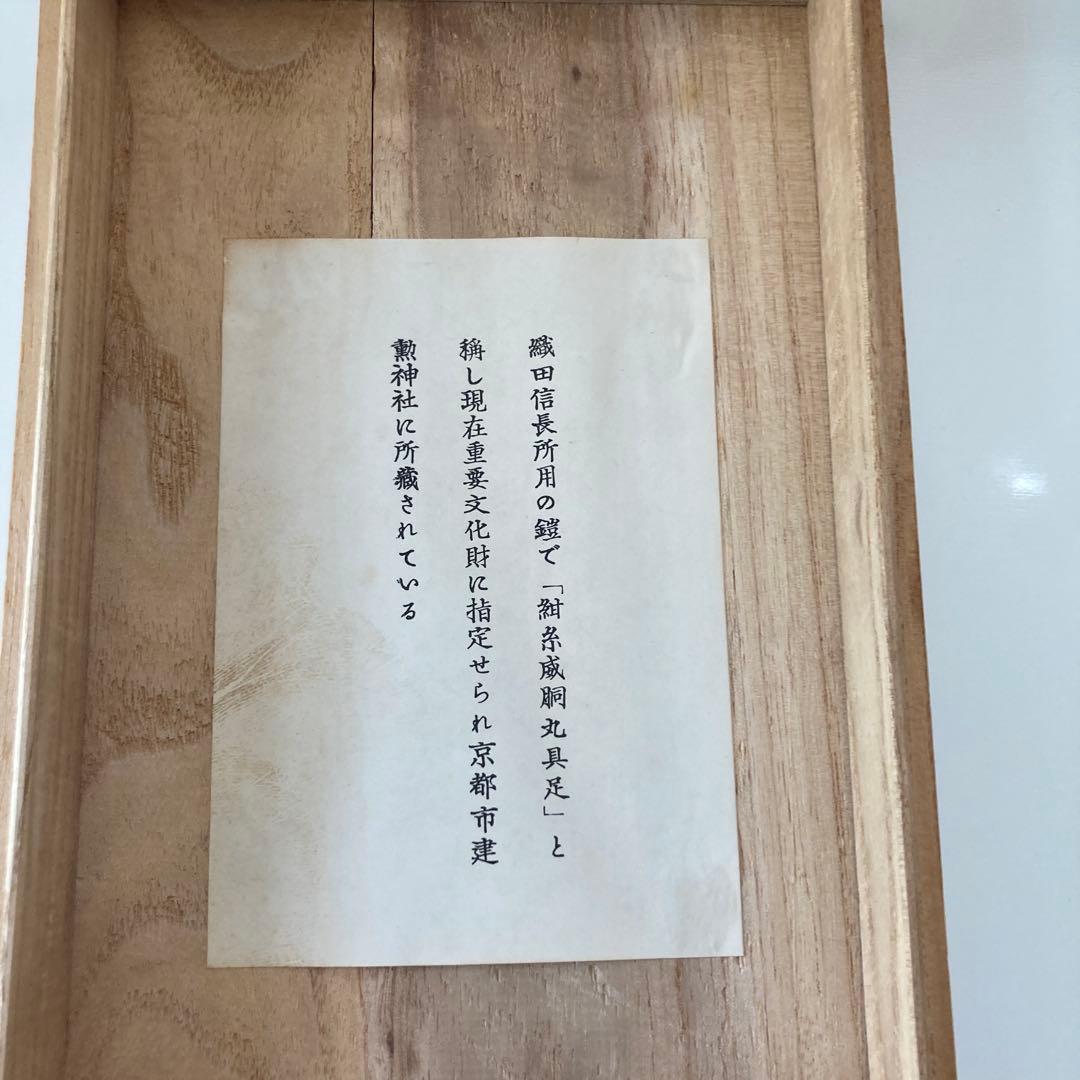 織田信長所用の鎧で「紺糸威胴丸具足」と
稱し現在重要文化財に指定せられ京都市建
勲神社に所蔵されている